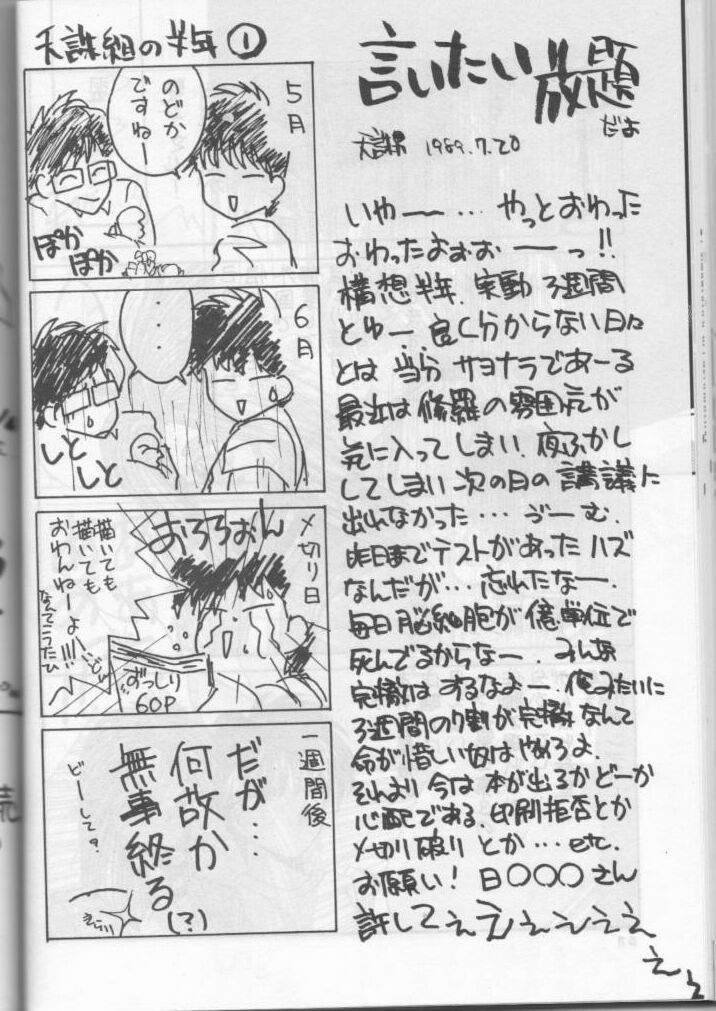 天誅組の半年①
5月
のどか
ですねー
ぽか
ぽか
6月
・・・
しと
しと
〆切り日
おろろぉん
描いても
描いても
おわんねーよー!!!
なんてこったい
ずっしり
60P
一週間後
だが…
何故か
無事終る
(?)
どーして?
言いたい放題
だよ
天誅組 1989.7.20
いやー…やっとおわった
おわったよぉぉーっ!!
構想半年、実動3週間
とゆー、良く分からない日々
とは当分サヨナラであーる
最近は修羅の雰囲気が
気に入ってしまい、夜ふかし
してしまい次の日の講議に
出れなかった…うーむ、
昨日までテストがあったハズ
なんだが…忘れたなー、
毎日脳細胞が億単位で
死んでるからなー、みんな
完徹はするなよー、俺みたいに
3週間の9割が完徹なんて
命が惜しい奴はやめろよ、
それより今は本が出るかどーか
心配である、印刷拒否とか
〆切り破りとか…etc.
お願い!日〇〇〇さん
許してぇえぇぇぇぇ
ぇぇ